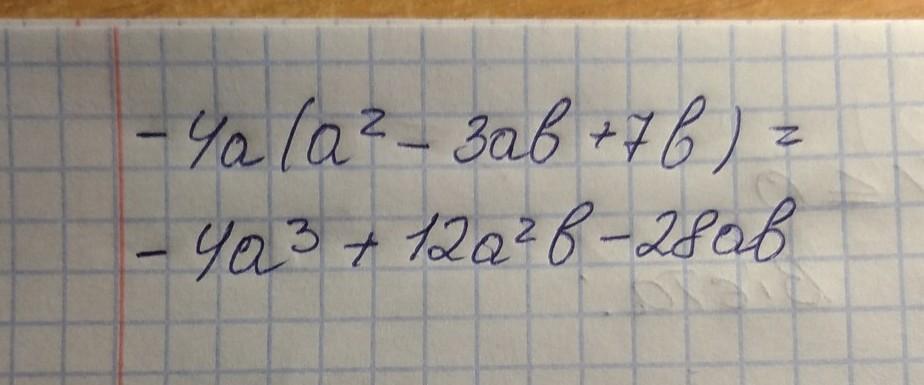 -4a(a² - 3ab + 7b) =
-4a³ + 12a²b - 28ab